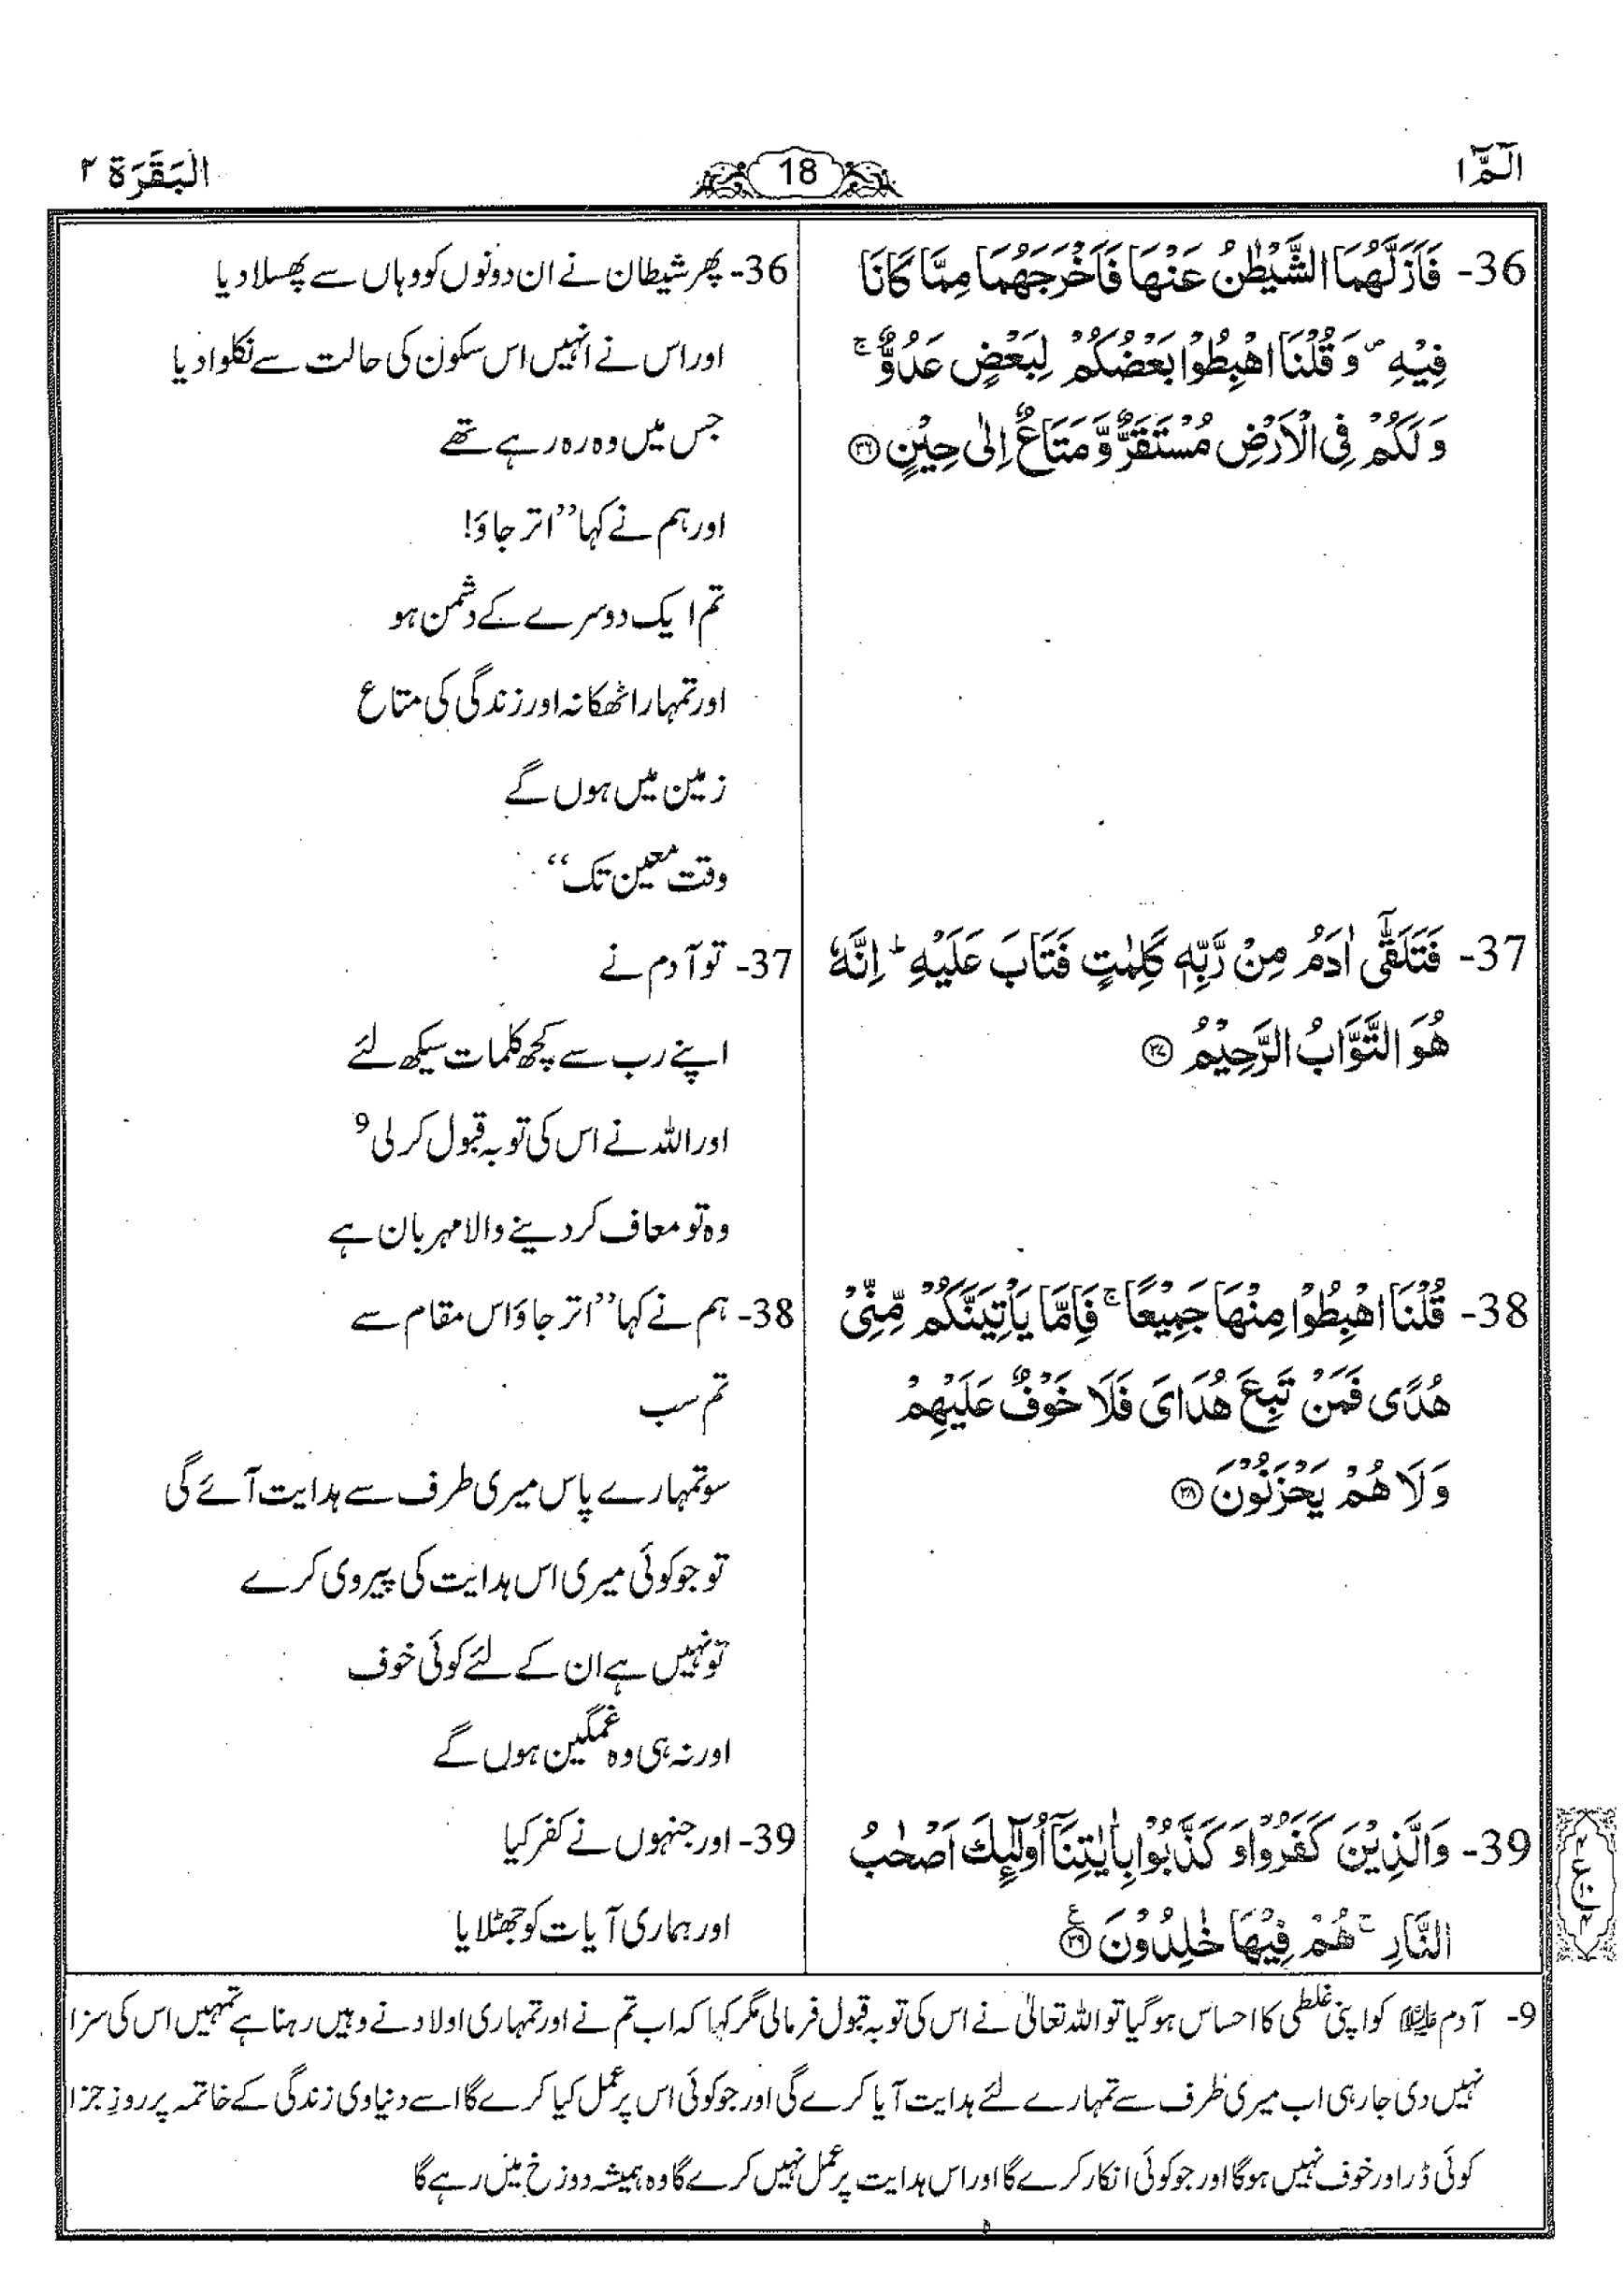 الٓمّٓ ١
18
البَقَرَة ٢
36- فَاَزَلَّهُمَا الشَّيْطٰنُ عَنْهَا فَاَخْرَجَهُمَا مِمَّا كَانَا
فِيْهِ ۪ وَ قُلْنَا اهْبِطُوْا بَعْضُكُمْ لِبَعْضٍ عَدُوٌّ ۚ
وَ لَكُمْ فِى الْاَرْضِ مُسْتَقَرٌّ وَّ مَتَاعٌ اِلٰى حِيْنٍ ۝۳۶
37- فَتَلَقّٰٓى اٰدَمُ مِنْ رَّبِّهٖ كَلِمٰتٍ فَتَابَ عَلَيْهِ ؕ اِنَّهٗ
هُوَ التَّوَّابُ الرَّحِيْمُ ۝۳۷
38- قُلْنَا اهْبِطُوْا مِنْهَا جَمِيْعًا ۚ فَاِمَّا يَاْتِيَنَّكُمْ مِّنِّىْ
هُدًى فَمَنْ تَبِعَ هُدَاىَ فَلَا خَوْفٌ عَلَيْهِمْ
وَ لَا هُمْ يَحْزَنُوْنَ ۝۳۸
39- وَالَّذِيْنَ كَفَرُوْا وَ كَذَّبُوْا بِاٰيٰتِنَآ اُولٰٓئِكَ اَصْحٰبُ
النَّارِ ۚ هُمْ فِيْهَا خٰلِدُوْنَ ۝۳۹ ع
36- پھر شیطان نے ان دونوں کو وہاں سے پھسلا دیا
اور اس نے انہیں اس سکون کی حالت سے نکلوا دیا
جس میں وہ رہ رہے تھے
اور ہم نے کہا ’’اتر جاؤ!
تم ایک دوسرے کے دشمن ہو
اور تمہارا ٹھکانہ اور زندگی کی متاع
زمین میں ہوں گے
وقت معین تک‘‘
37- تو آدم نے
اپنے رب سے کچھ کلمات سیکھ لئے
اور اللہ نے اس کی توبہ قبول کر لی 9
وہ تو معاف کر دینے والا مہربان ہے
38- ہم نے کہا ’’اتر جاؤ اس مقام سے
تم سب
سو تمہارے پاس میری طرف سے ہدایت آئے گی
تو جو کوئی میری اس ہدایت کی پیروی کرے
تو نہیں ہے ان کے لئے کوئی خوف
اور نہ ہی وہ غمگین ہوں گے
39- اور جنہوں نے کفر کیا
اور ہماری آیات کو جھٹلایا
9- آدم علیہ السلام کو اپنی غلطی کا احساس ہو گیا تو اللہ تعالیٰ نے اس کی توبہ قبول فرمالی مگر کہا کہ اب تم نے اور تمہاری اولاد نے وہیں رہنا ہے تمہیں اس کی سزا
نہیں دی جارہی اب میری طرف سے تمہارے لئے ہدایت آیا کرے گی اور جو کوئی اس پر عمل کیا کرے گا اسے دنیاوی زندگی کے خاتمہ پر روزِ جزا
کوئی ڈر اور خوف نہیں ہوگا اور جو کوئی انکار کرے گا اور اس ہدایت پر عمل نہیں کرے گا وہ ہمیشہ دوزخ میں رہے گا